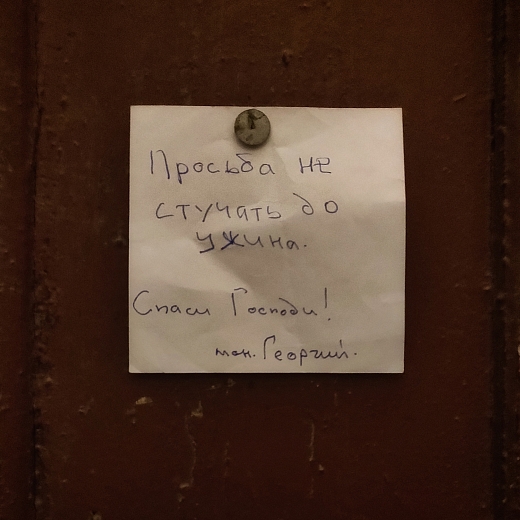 Просьба не
стучать до
ужина.
Спаси Господи!
мон. Георгий.